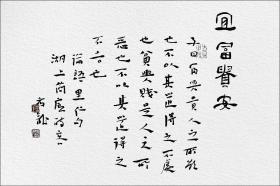 宜富貴安
子曰富與貴是人之所欲
也不以其道得之不處
也貧與賤是人之所
惡也不以其道得之
不去也
論語里仁句
湖上